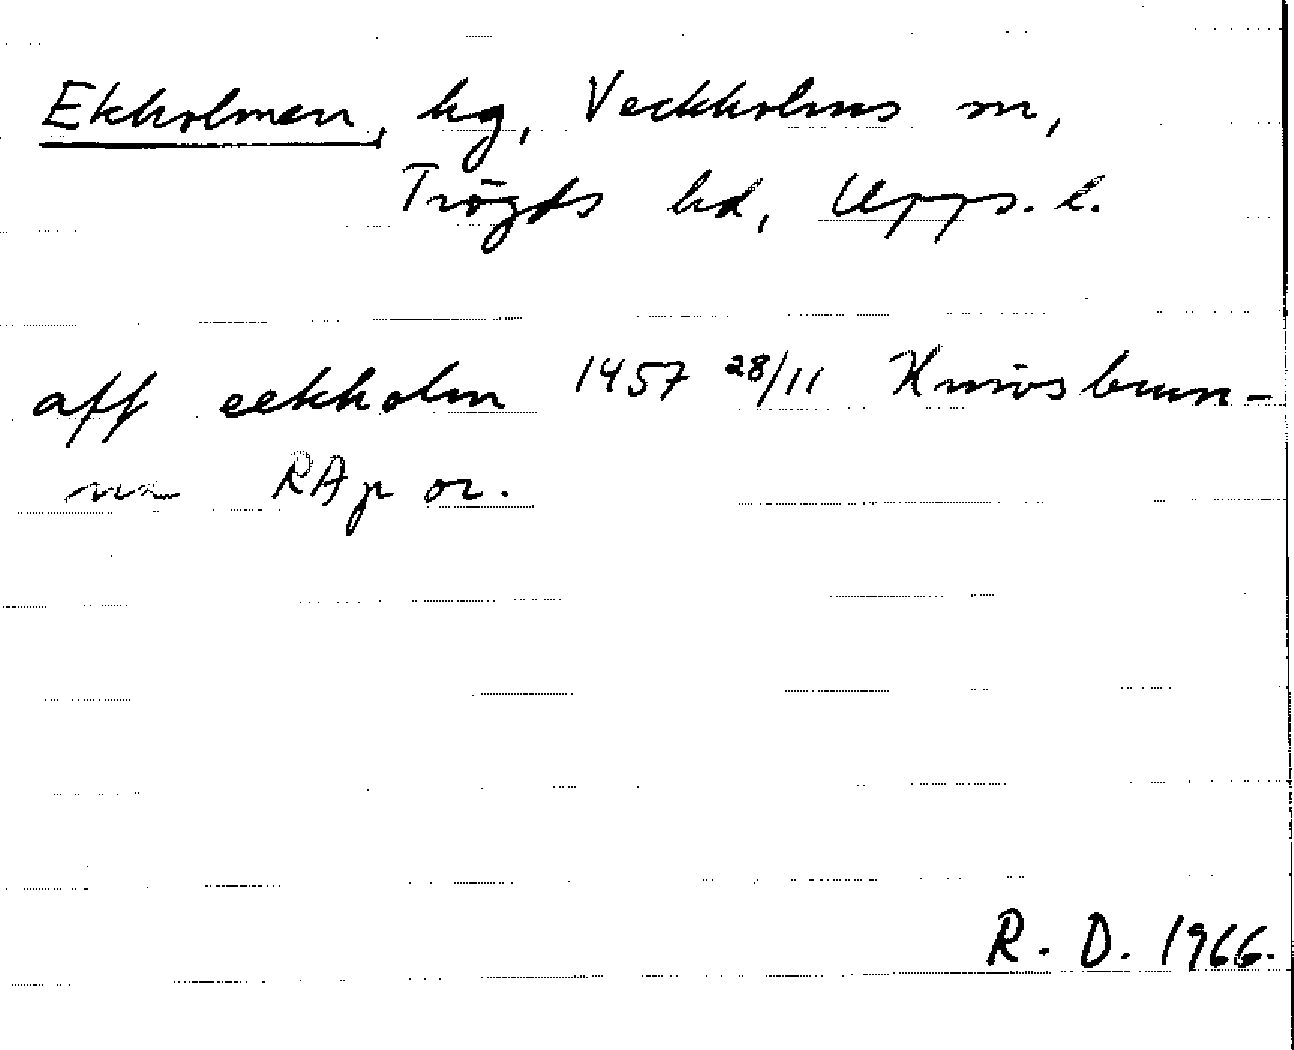 Ekholmen, hg, Veckholms sn,
Trögds hd, Upps. l.
aff eekholm 1457 28/11 Knivsbrun-
na RAp or.
R. D. 1966.